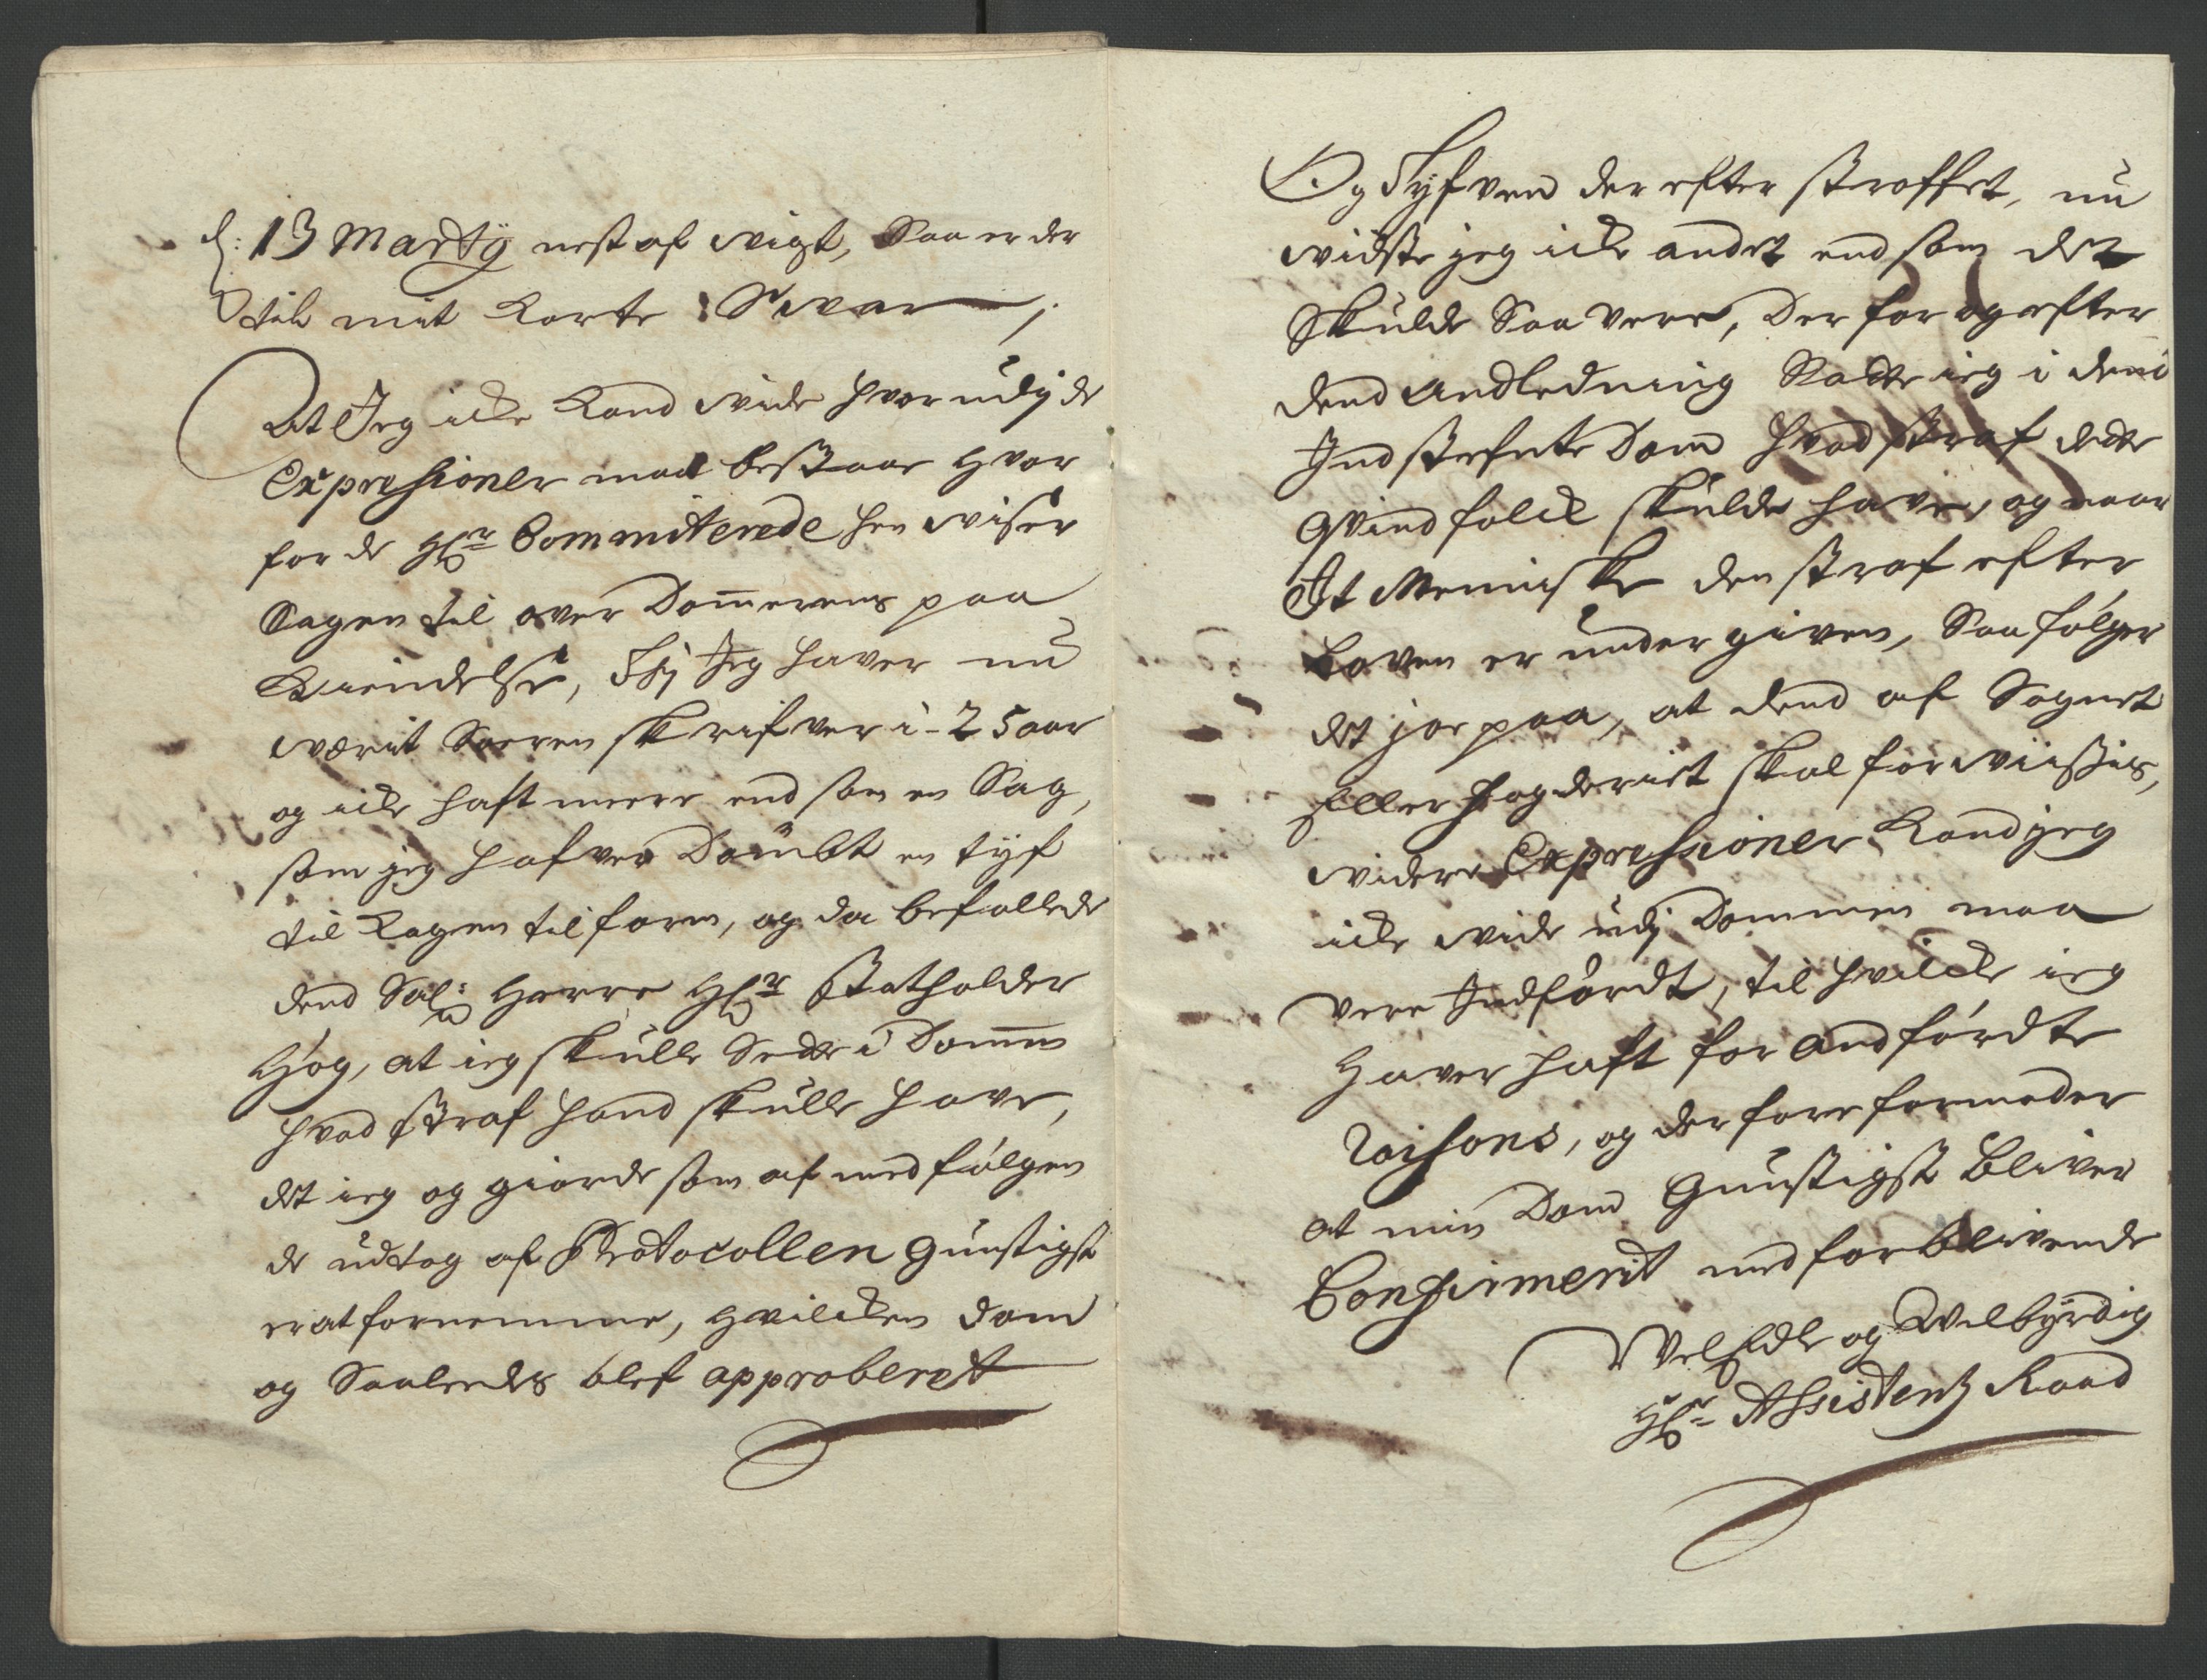 d: 13 Martÿ nest af vigt, Saa er der
til mit Korte Svar ;
At Jeg icke Kand vide hvor udj de
Expressioner maa bestaae hvor
for de Hr: Committerede hen viser
Sagen til over Dommerens paa
Kiendelse, Thj Jeg haver nu
værit Soren skrifver i 25 aar
og icke haft meere end som en Sag,
som jeg hafver Dømbt en tyf
til Kagen tilforn, og da befallede
dend Sal: Herre Hr: Statholder
Høg, at ieg skulle Sette i Domen
hvad straf hand skulle have,
det ieg og giorde som af medfølgen
de udtog af Protocollen gunstigst
er at fornemme, hvilcken dom
og Saaledes blef approberet
Og Tyfven der efter straffet, nu
vidste jeg icke andet end som det
Skulde Saa vere, Der for og efter
dend Andledning Satte ieg i denne
Indstefnte Dom hvad straf dette
Qvindfolck skulde have, og naar
Et Menniske den straf efter
Loven er under given, Saa følger
det jo paa, at dend af Sognet
Eller fogderiet skal forviises,
videre Expressioner Kand jeg
icke vide udj Dommen maa
vere Indførdt, til hvilcke ieg
haver haft for andførdte
raisons, og derfore formoder
at min Dom Gunstigst bliver
Confirmerit med forblivende
VelEdle og Velbyrdig
Hr: Assistentz Raad